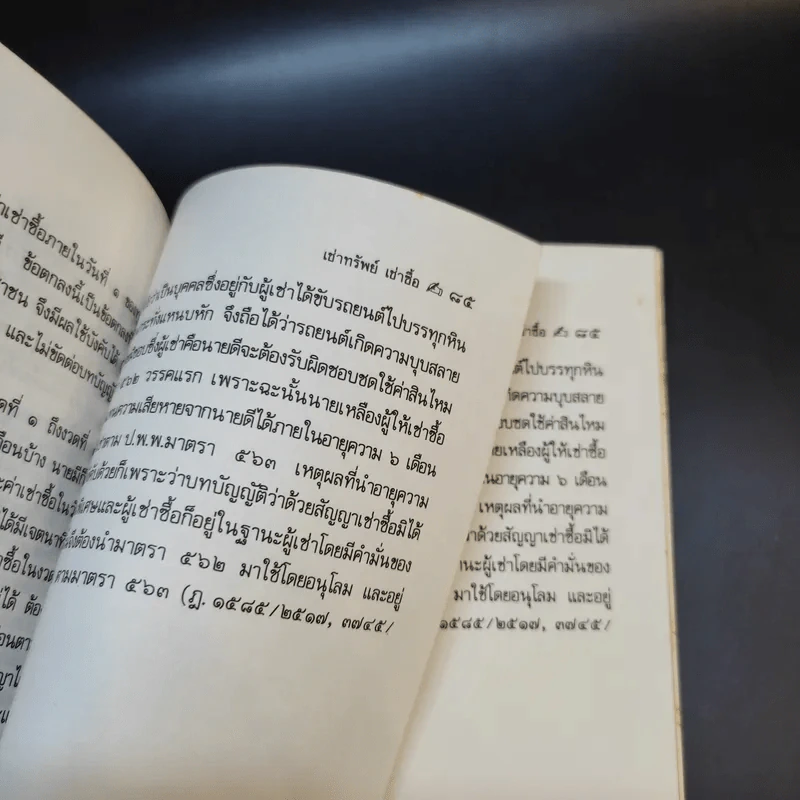 าเช่าซื้อภายในวันที่ ๑
ข้อตกลงนี้เป็นข้อตกลง
จึงมีผลใช้บังคับได้
และไม่ขัดต่อบทบัญญั
ดที่ ๑ ถึงงวดที่
ดือนบ้าง
ะค่าเช่าซื้อใน
ได้มีเจตนา
ช่าซื้อในงวด
ได้ ต้อง
เช่าทรัพย์ เช่าซื้อ ๘๕
เป็นบุคคลซึ่งอยู่กับผู้เช่าได้ขับรถยนต์ไปบรรทุกหิน
ระทั่งแหนบหัก จึงถือได้ว่ารถยนต์เกิดความบุบสลาย
ชอบซึ่งผู้เช่าคือนายดีจะต้องรับผิดชอบชดใช้ค่าสินไหม
๕๖๒ วรรคแรก เพราะฉะนั้นนายเหลืองผู้ให้เช่าซื้อ
ความเสียหายจากนายดีได้ภายในอายุความ ๖ เดือน
ตาม ป.พ.พ.มาตรา ๕๖๓ เหตุผลที่นำอายุความ
ด้วยก็เพราะว่าบทบัญญัติว่าด้วยสัญญาเช่าซื้อมิได้
และผู้เช่าซื้อก็อยู่ในฐานะผู้เช่าโดยมีคำมั่นของ
ต้องนำมาตรา ๕๖๒ มาใช้โดยอนุโลม และอยู่
ตามมาตรา ๕๖๓ (ฎ. ๑๕๘๕/๒๕๑๗, ๓๗๔๕/
าซื้อ ๘๕
ต์ไปบรรทุกหิน
กิดความบุบสลาย
บชดใช้ค่าสินไหม
ยเหลืองผู้ให้เช่าซื้อ
นอายุความ ๖ เดือน
เหตุผลที่นำอายุความ
าด้วยสัญญาเช่าซื้อมิได้
นะผู้เช่าโดยมีคำมั่นของ
มาใช้โดยอนุโลม และอยู่
๑๕๘๕/๒๕๑๗, ๓๗๔๕/